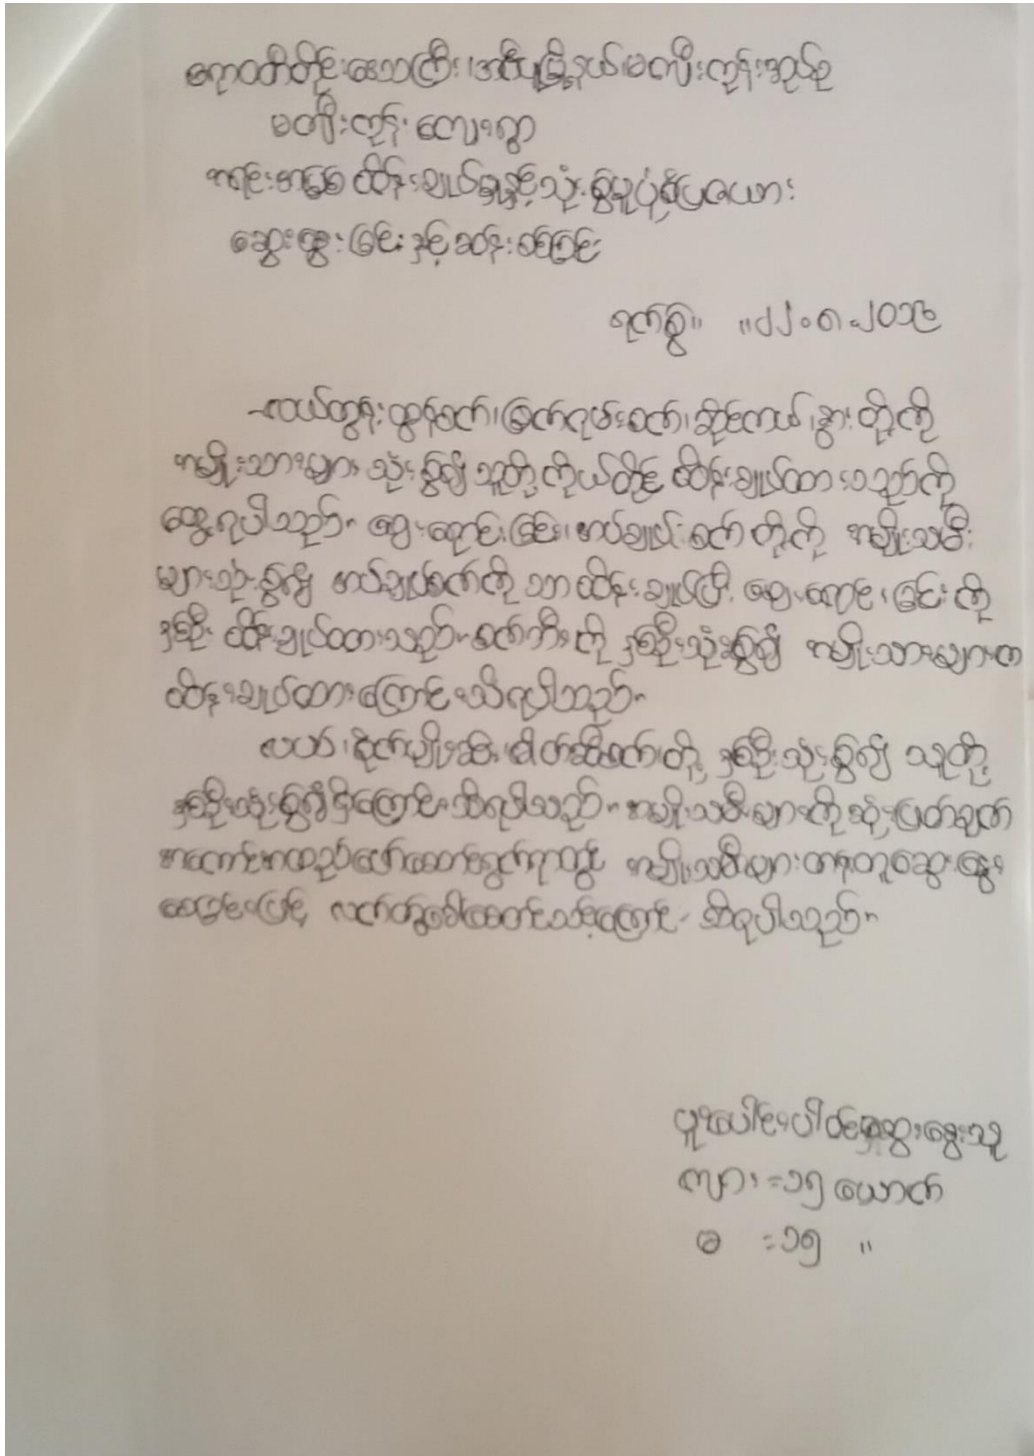 ဧရာဝတီတိုင်းဒေသကြီး၊ အင်္ဂပူမြို့နယ်၊ မကျီးကုန်းအုပ်စု
မကျီးကုန်း ကျေးရွာ
အရင်းအမြစ် ထိန်းချုပ်မှုနှင့် သုံးစွဲမှုပုံစံပြဇယား
ဆွေးနွေးခြင်းနှင့် ဆန်းစစ်ခြင်း
ရက်စွဲ။ ။၂၂.၈.၂၀၁၆
လယ်ထွန်းထွန်စက်၊ မြက်ဂုမ်းစက်၊ ဆိုင်ကယ်၊ နွား တို့ကို
အမျိုးသားများ သုံးစွဲ၍ သူတို့ကိုယ်တိုင် ထိန်းချုပ်ထားသည်ကို
တွေ့ရပါသည်။ ဈေးရောင်းခြင်း၊ အပ်ချုပ်စက် တို့ကို အမျိုးသမီး
များသုံးစွဲ၍ အပ်ချုပ်စက်ကို သာထိန်းချုပ်ပြီး ဈေးရောင်းခြင်းကို
နှစ်ဦး ထိန်းချုပ်ထားသည်။ စက်ဘီးကို နှစ်ဦးသုံးစွဲ၍ အမျိုးသားများက
ထိန်းချုပ်ထားကြောင်းသိရပါသည်။
လယ်၊ စိုက်ပျိုးဆီး၊ ဓါတ်ဆီစက် တို့ နှစ်ဦးသုံးစွဲ၍ သူတို့
နှစ်ဦးသုံးစွဲ၍ ကြောင်းသိရပါသည်။ အမျိုးသမီးများကို ဆုံးဖြတ်ချက်
အကောင်အထည်ဖော်ဆောင်ရွက်ရာတွင် အမျိုးသမီးများ ဆွေးနွေး
လက်တွဲခေါ်ဆောင်သင့်ကြောင်း သိရပါသည်။
ပူးပေါင်းပါဝင်ဆွေးနွေးသူ
ကျား =၁၅ ယောက်
မ =၁၅ ။